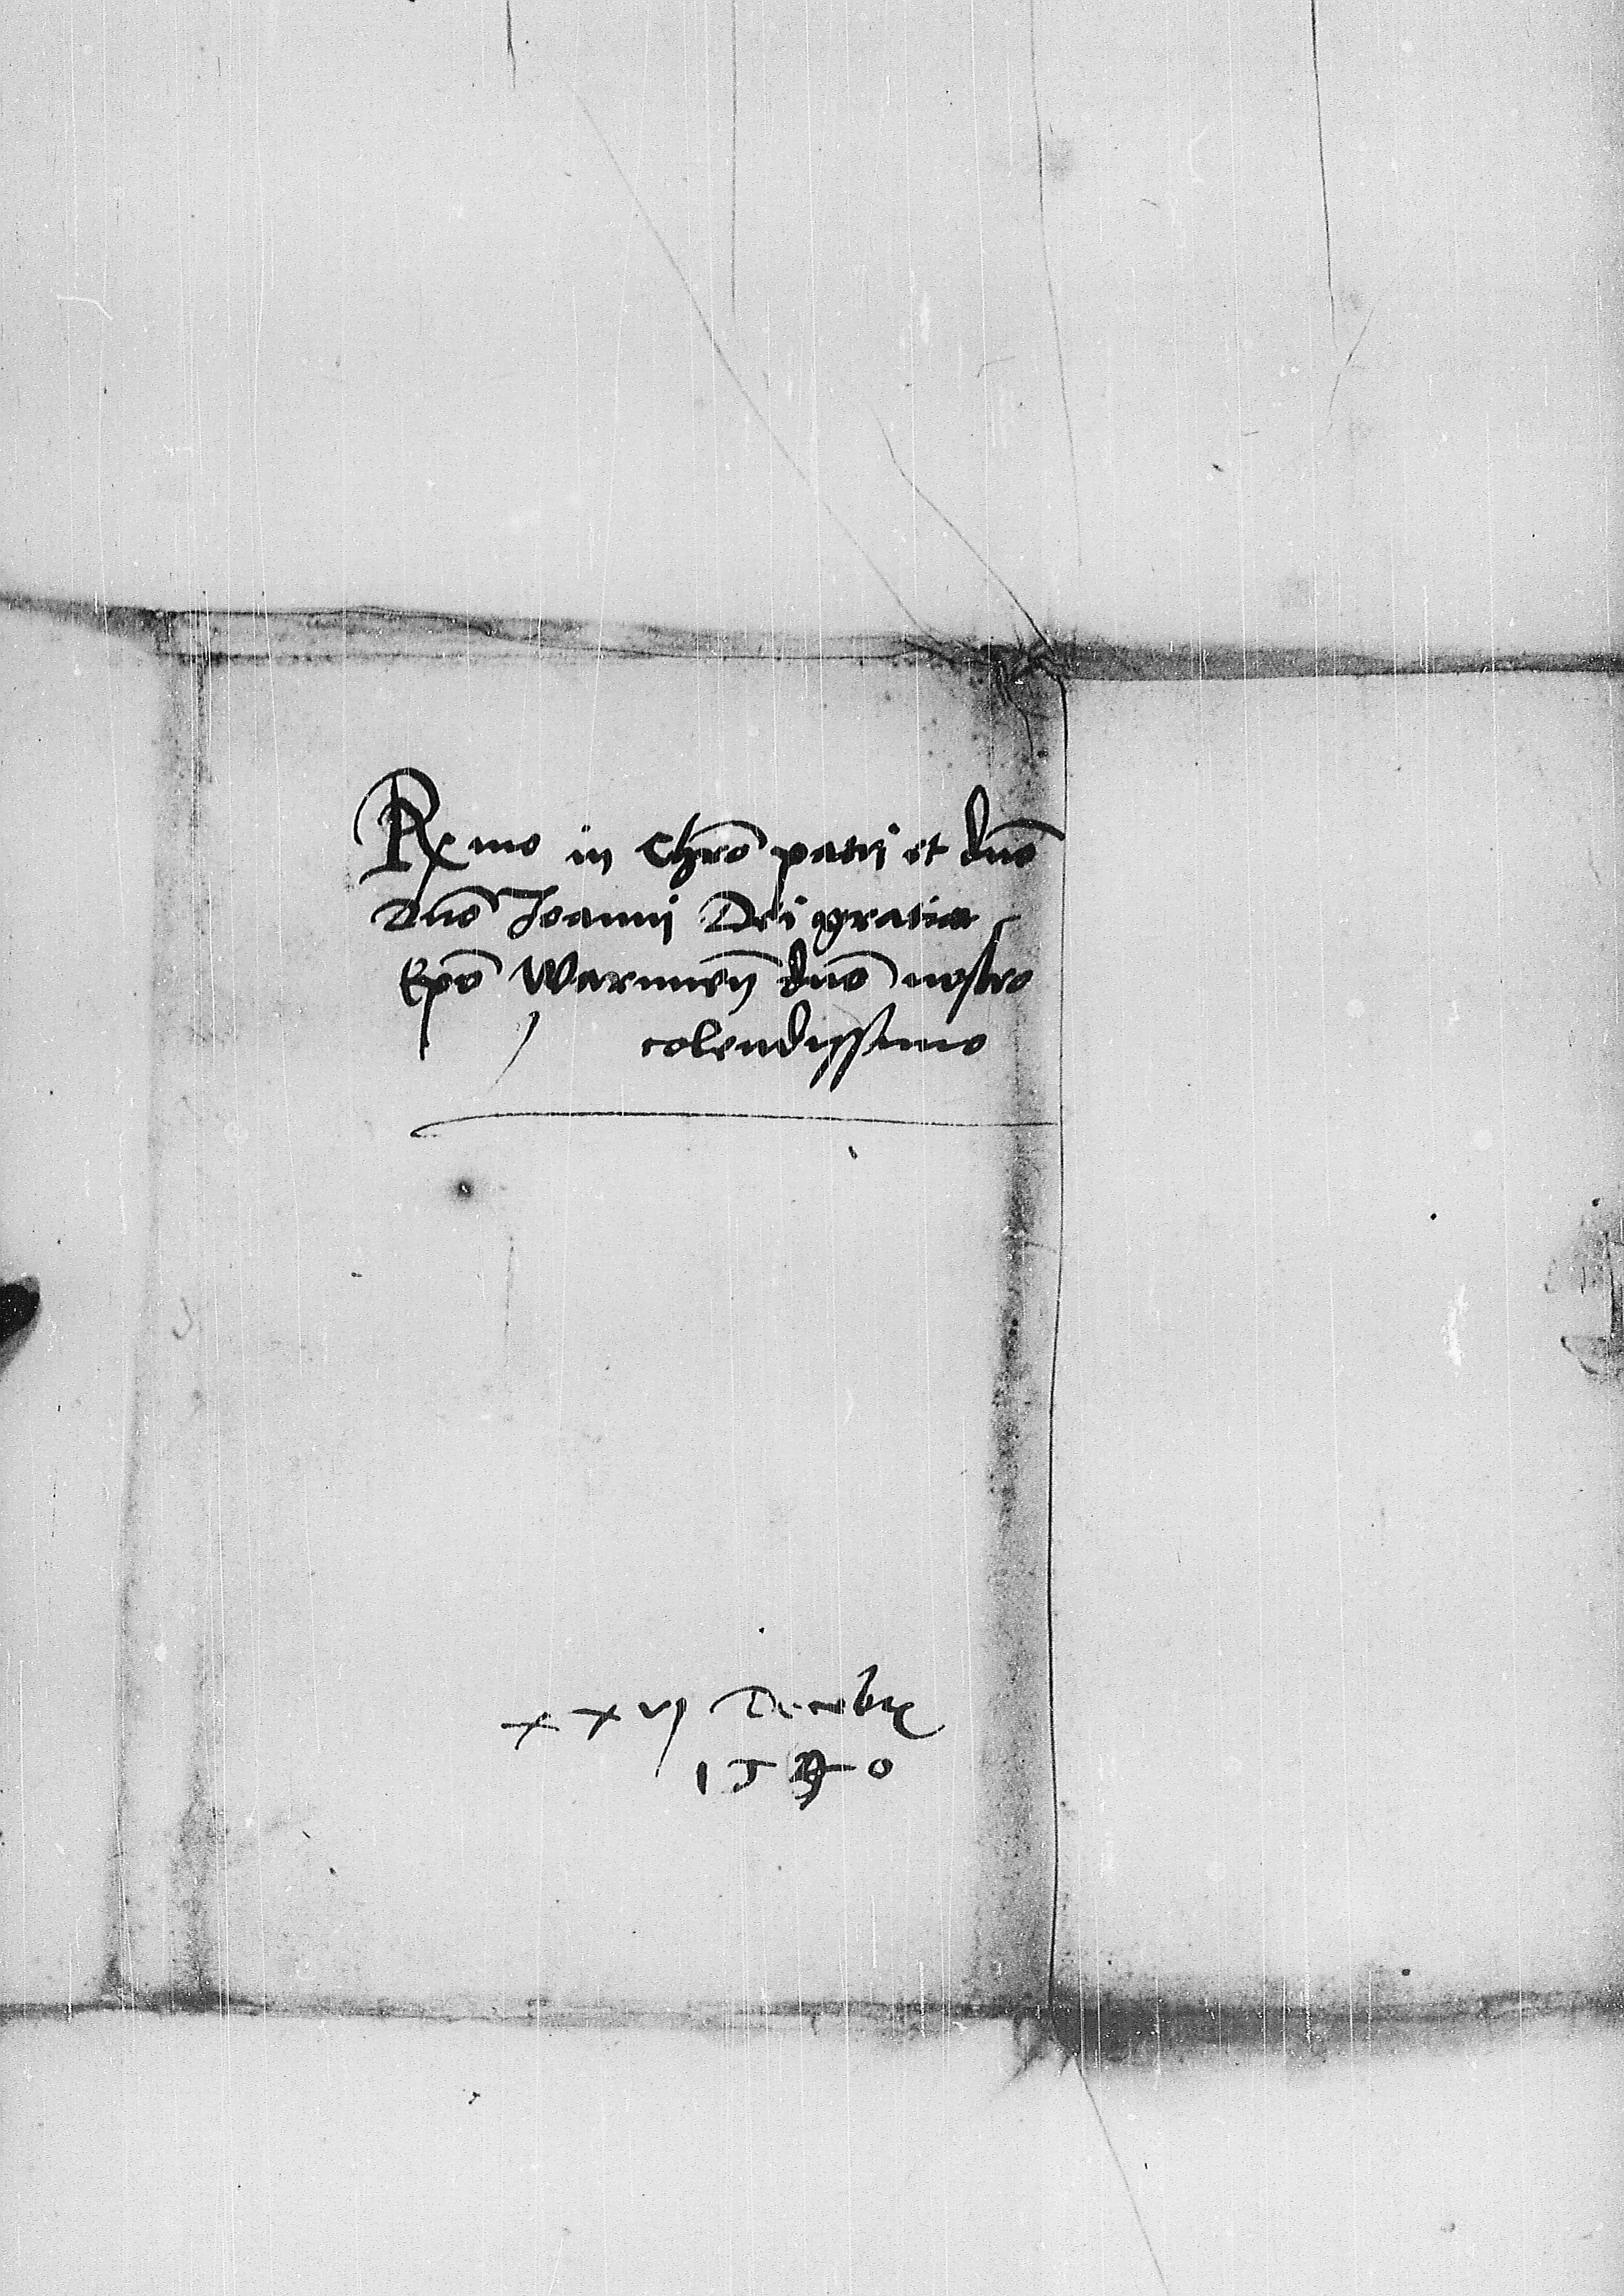 Rmo in Chro patri et dno
dno Joanni Dei gratia
Epo Warmien dno nostro
colendissimo
xxvj Decembr
1540